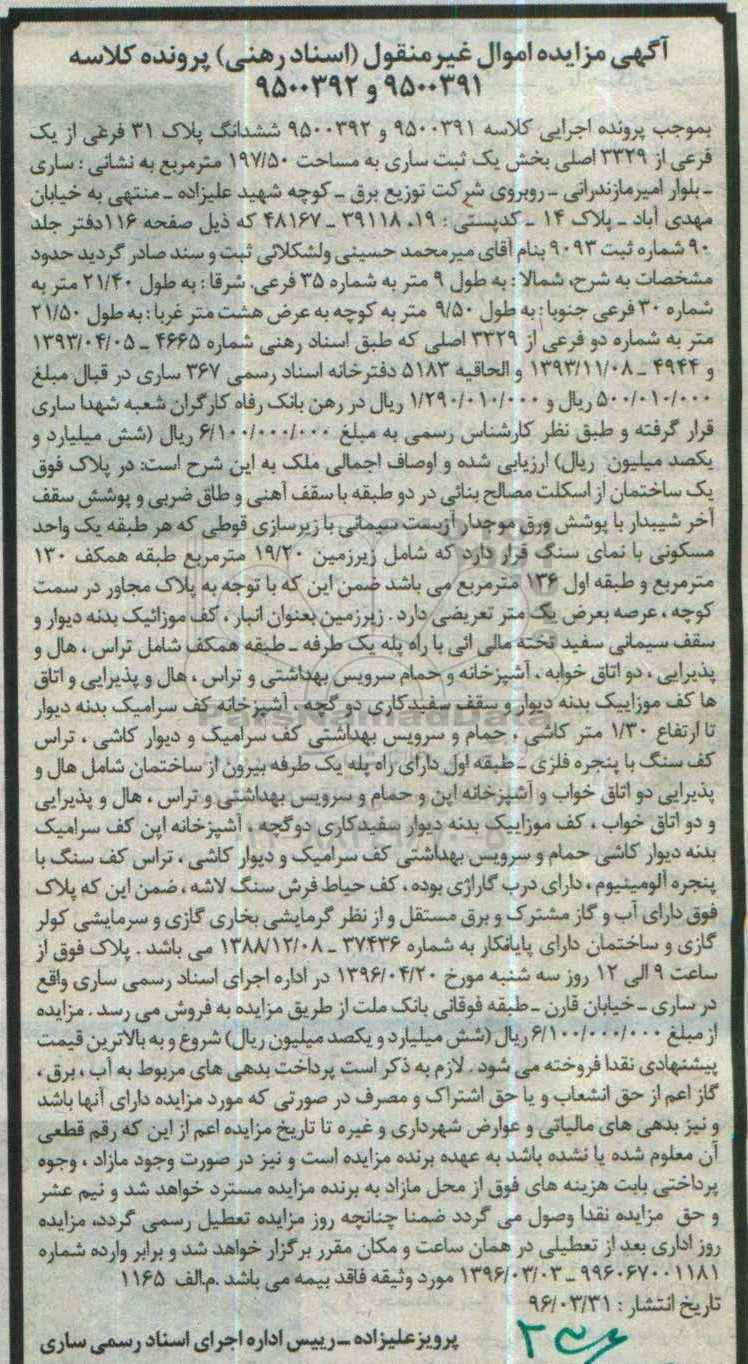 آگهی مزایده اموال غیرمنقول (اسناد رهنی) پرونده کلاسه
۹۵۰۰۳۹۱ و ۹۵۰۰۳۹۲
بموجب پرونده اجرایی کلاسه ۹۵۰۰۳۹۱ و ۹۵۰۰۳۹۲ ششدانگ پلاک ۳۱ فرعی از یک
فرعی از ۳۳۲۹ اصلی بخش یک ثبت ساری به مساحت ۱۹۷/۵۰ مترمربع به نشانی : ساری
ـ بلوار امیرمازندرانی ـ روبروی شرکت توزیع برق ـ کوچه شهید علیزاده ـ منتهی به خیابان
مهدی آباد ـ پلاک ۱۴ ـ کدپستی : ۱۹، ۳۹۱۱۸ ـ ۴۸۱۶۷ که ذیل صفحه ۱۱۶دفتر جلد
۹۰ شماره ثبت ۹۰۹۳ بنام آقای میرمحمد حسینی ولشکلائی ثبت و سند صادر گردید حدود
مشخصات به شرح، شمالا : به طول ۹ متر به شماره ۳۵ فرعی، شرقا : به طول ۲۱/۴۰ متر به
شماره ۳۰ فرعی جنوبا : به طول ۹/۵۰ متر به کوچه به عرض هشت متر غربا : به طول ۲۱/۵۰
متر به شماره دو فرعی از ۳۳۲۹ اصلی که طبق اسناد رهنی شماره ۴۶۶۵ ـ ۱۳۹۳/۰۴/۰۵
و ۴۹۴۴ ـ ۱۳۹۳/۱۱/۰۸ و الحاقیه ۵۱۸۳ دفترخانه اسناد رسمی ۳۶۷ ساری در قبال مبلغ
۵۰۰/۰۱۰/۰۰۰ ریال و ۱/۲۹۰/۰۱۰/۰۰۰ ریال در رهن بانک رفاه کارگران شعبه شهدا ساری
قرار گرفته و طبق نظر کارشناس رسمی به مبلغ ۶/۱۰۰/۰۰۰/۰۰۰ ریال (شش میلیارد و
یکصد میلیون ریال) ارزیابی شده و اوصاف اجمالی ملک به این شرح است: در پلاک فوق
یک ساختمان از اسکلت مصالح بنائی در دو طبقه با سقف آهنی و طاق ضربی و پوشش سقف
آخر شیبدار با پوشش ورق موجدار آزبست سیمانی با زیرسازی قوطی که هر طبقه یک واحد
مسکونی با نمای سنگ قرار دارد که شامل زیرزمین ۱۹/۲۰ مترمربع طبقه همکف ۱۳۰
مترمربع و طبقه اول ۱۳۶ مترمربع می باشد ضمن این که با توجه به پلاک مجاور در سمت
کوچه ، عرصه بعرض یک متر تعریضی دارد . زیرزمین بعنوان انبار ، کف موزائیک بدنه دیوار و
سقف سیمانی سفید تخته مالی ائی با راه پله یک طرفه ـ طبقه همکف شامل تراس ، هال و
پذیرایی ، دو اتاق خوابه ، آشپزخانه و حمام سرویس بهداشتی و تراس ، هال و پذیرایی و اتاق
ها کف موزاییک بدنه دیوار و سقف سفیدکاری دو گچه ، آشپزخانه کف سرامیک بدنه دیوار
تا ارتفاع ۱/۳۰ متر کاشی ، حمام و سرویس بهداشتی کف سرامیک و دیوار کاشی ، تراس
کف سنگ با پنجره فلزی ـ طبقه اول دارای راه پله یک طرفه بیرون از ساختمان شامل هال و
پذیرایی دو اتاق خواب و آشپزخانه اپن و حمام و سرویس بهداشتی و تراس ، هال و پذیرایی
و دو اتاق خواب ، کف موزاییک بدنه دیوار سفیدکاری دوگچه ، آشپزخانه اپن کف سرامیک
بدنه دیوار کاشی حمام و سرویس بهداشتی کف سرامیک و دیوار کاشی ، تراس کف سنگ با
پنجره آلومینیوم ، دارای درب گاراژی بوده ، کف حیاط فرش سنگ لاشه ، ضمن این که پلاک
فوق دارای آب و گاز مشترک و برق مستقل و از نظر گرمایشی بخاری گازی و سرمایشی کولر
گازی و ساختمان دارای پایانکار به شماره ۳۷۴۳۶ ـ ۱۳۸۸/۱۲/۰۸ می باشد . پلاک فوق از
ساعت ۹ الی ۱۲ روز سه شنبه مورخ ۱۳۹۶/۰۴/۲۰ در اداره اجرای اسناد رسمی ساری واقع
در ساری ـ خیابان قارن ـ طبقه فوقانی بانک ملت از طریق مزایده به فروش می رسد . مزایده
از مبلغ ۶/۱۰۰/۰۰۰/۰۰۰ ریال (شش میلیارد و یکصد میلیون ریال) شروع و به بالاترین قیمت
پیشنهادی نقدا فروخته می شود . لازم به ذکر است پرداخت بدهی های مربوط به آب ، برق ،
گاز اعم از حق انشعاب و یا حق اشتراک و مصرف در صورتی که مورد مزایده دارای آنها باشد
و نیز بدهی های مالیاتی و عوارض شهرداری و غیره تا تاریخ مزایده اعم از این که رقم قطعی
آن معلوم شده یا نشده باشد به عهده برنده مزایده است و نیز در صورت وجود مازاد ، وجوه
پرداختی بابت هزینه های فوق از محل مازاد به برنده مزایده مسترد خواهد شد و نیم عشر
و حق مزایده نقدا وصول می گردد ضمنا چنانچه روز مزایده تعطیل رسمی گردد، مزایده
روز اداری بعد از تعطیلی در همان ساعت و مکان مقرر برگزار خواهد شد و برابر وارده شماره
۹۹۶۰۶۷۰۰۱۱۸۱ ـ ۱۳۹۶/۰۳/۰۳ مورد وثیقه فاقد بیمه می باشد .م.الف ۱۱۶۵
تاریخ انتشار : ۹۶/۰۳/۳۱
پرویز علیزاده ـ رییس اداره اجرای اسناد رسمی ساری
ParsNamadData